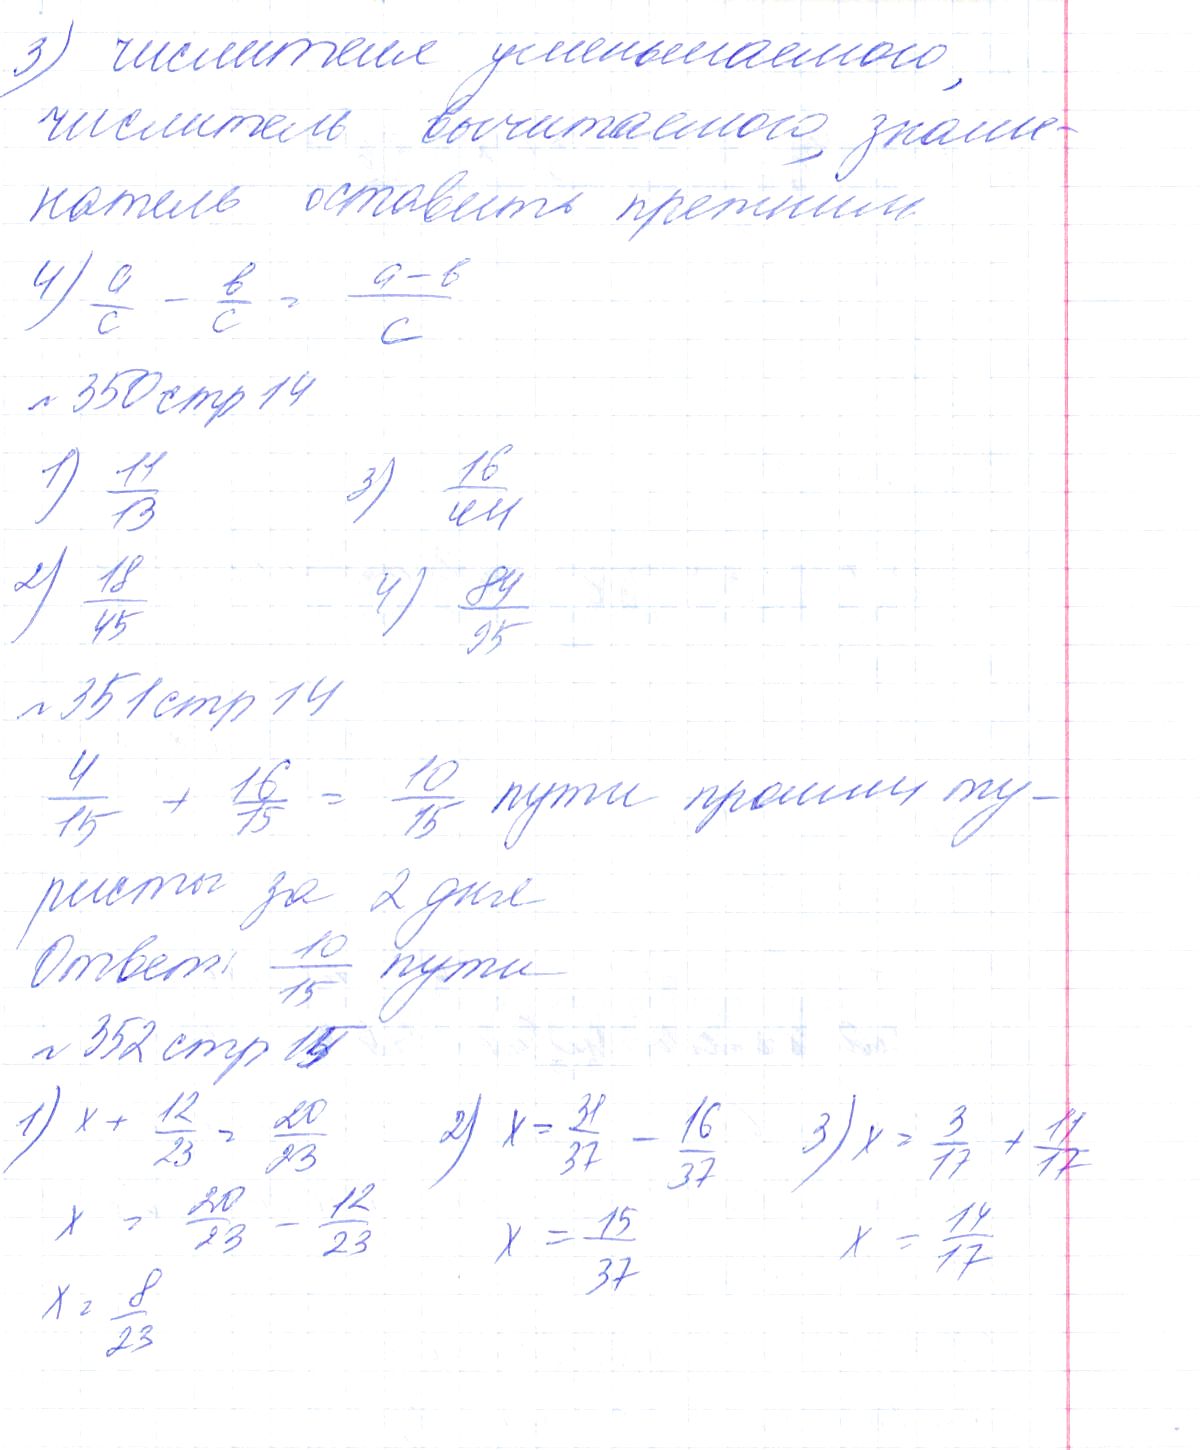 3) числителя уменьшаемого,
числитель вычитаемого, знаме-
натель оставить прежним
4) a/c - в/c = a-в/c
№350 стр 14
1) 11/13 3) 16/44
2) 18/45 4) 84/95
№351 стр 14
4/15 + 16/15 = 10/15 пути прошли ту-
ристы за 2 дня
Ответ: 10/15 пути
№352 стр 15
1) x + 12/23 = 20/23 2) x = 31/37 - 16/37 3) x = 3/17 + 11/17
x = 20/23 - 12/23 x = 15/37 x = 14/17
x = 8/23